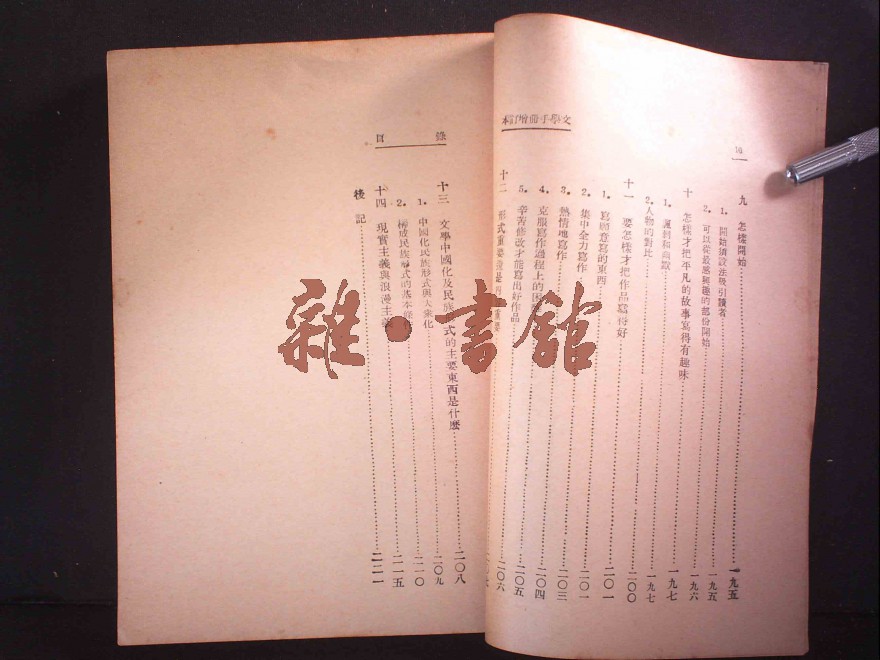 文學手冊增訂本
九 怎樣開始 一九五
1. 開始須設法吸引讀者 一九五
2. 可以從最感興趣的部份開始 一九六
十 怎樣才把平凡的故事寫得有趣味 一九七
1. 諷刺和幽默
2. 人物的對比 一九七
十一 要怎樣才把作品寫得好 二〇〇
1. 寫願意寫的東西 二〇一
2. 集中全力寫作 二〇一
3. 熱情地寫作 二〇三
4. 克服寫作過程上的困 二〇四
5. 辛苦修改才能寫出好作品 二〇五
十二 形式重要 重要 二〇六
目錄
十三 文學中國化及民族形式的主要東西是什麼 二〇八
1. 中國化民族形式與大衆化 二〇九
2. 構成民族形式的基本條件 二一〇
十四 現實主義與浪漫主義 二一五
後記 二二一
雜·書館